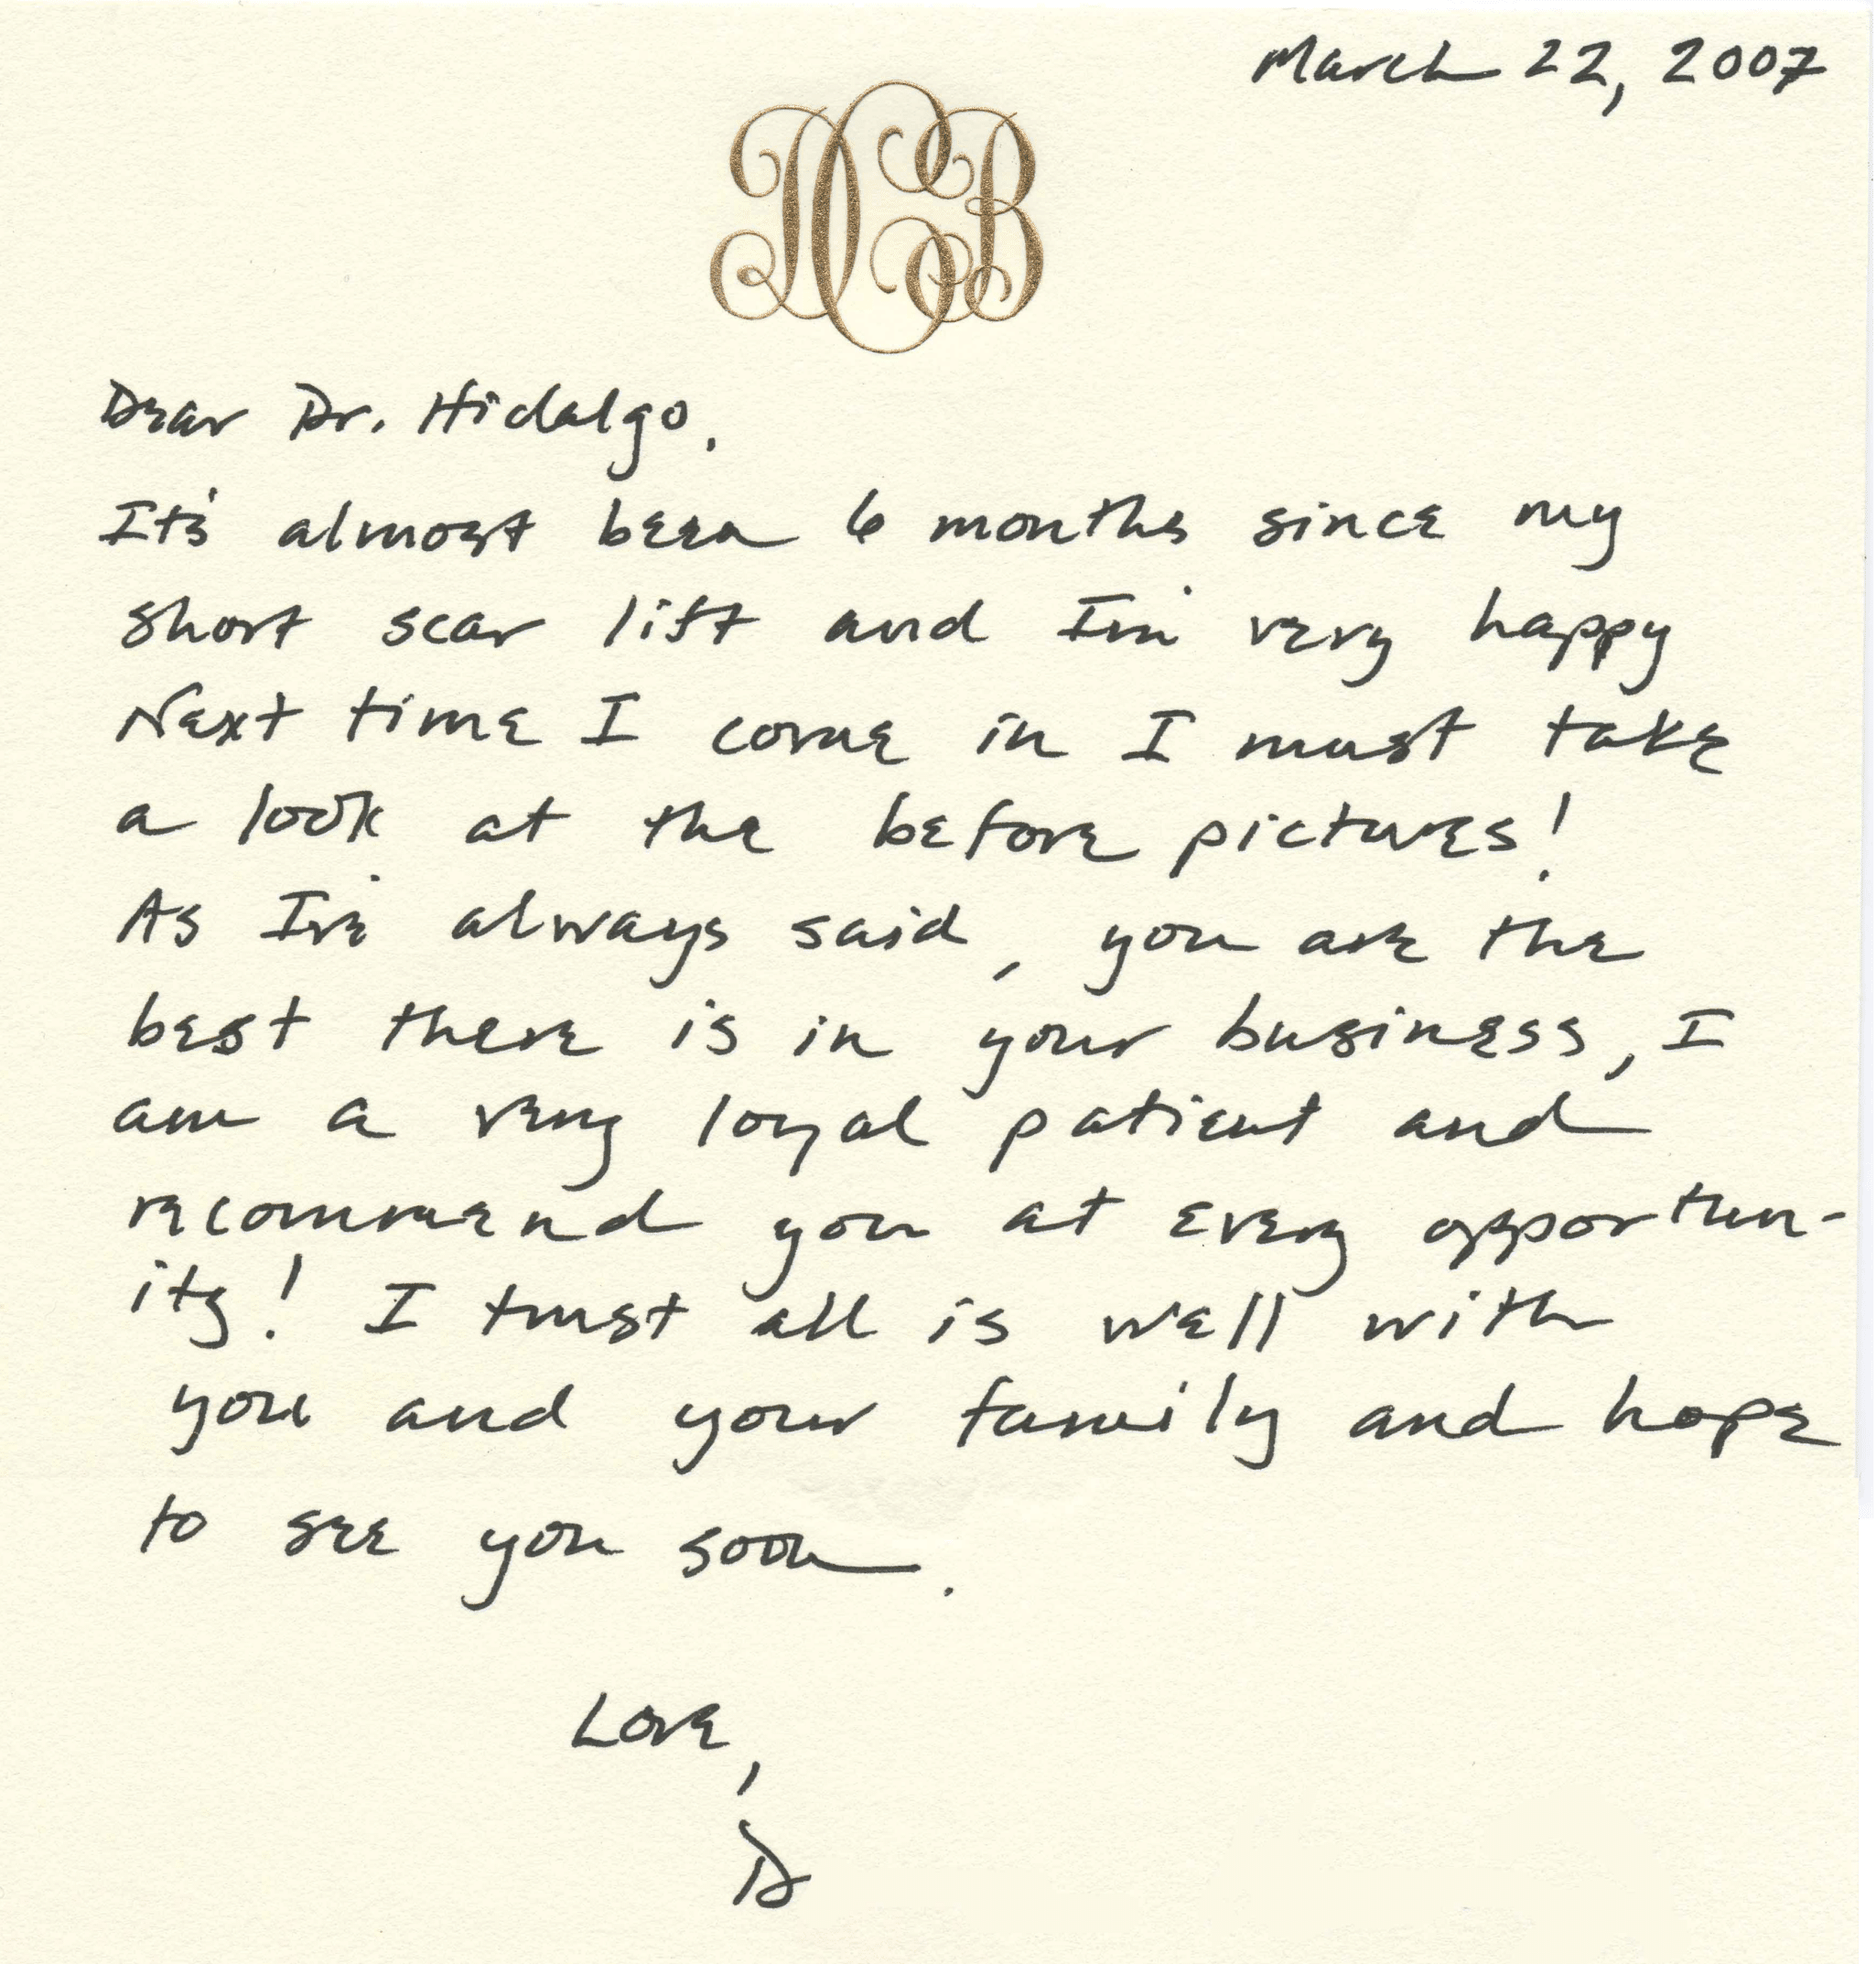 March 22, 2007
Dear Dr. Hidalgo,
It's almost been 6 months since my
short scar lift and I'm very happy
Next time I come in I must take
a look at the before pictures!
As I've always said, you are the
best there is in your business, I
am a very loyal patient and
recommend you at every opportun-
ity! I trust all is well with
you and your family and hope
to see you soon.
Love,
D